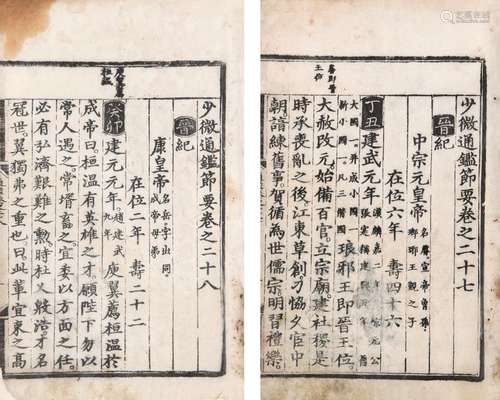 少微通鑑節要卷之二十七
晉紀
中宗元皇帝 名睿宣帝曾孫 瑯琊王覲之子
在位六年 壽四十六
丁丑 建武元年
琅邪王即晉王位
大赦改元始備百官立宗廟建社稷是
時承喪亂之後江東草創刁協久宦中
朝諳練舊事賀循為世儒宗明習禮樂
少微通鑑節要卷之二十八
晉紀
康皇帝 名岳字世同 成帝母弟
在位二年 壽二十二
癸卯 建元元年 趙建武九年 庾翼薦桓溫於
成帝曰桓溫有英雄之才願陛下勿以
常人遇之常壻畜之宜委以方面之任
必有弘濟艱難之勳時杜乂殷浩才名
冠世翼獨弗之重也曰此輩宜束之高